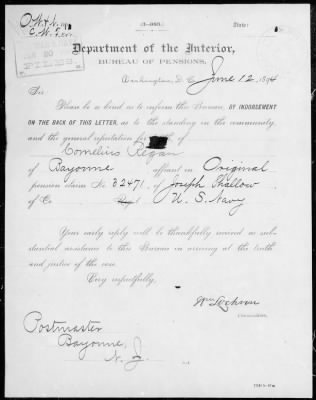 (3-080.)
State:
Department of the Interior,
BUREAU OF PENSIONS,
Washington, D. C., June 12, 1894
Sir:
Please be so kind as to inform this Bureau, BY INDORSEMENT
ON THE BACK OF THIS LETTER, as to the standing in the community,
and the general reputation for of
Cornelius Regan
of Bayonne affiant in Original
pension claim No. 32471, of Joseph Shallow
of Co. U. S. Navy
Your early reply will be thankfully received as sub-
stantial assistance to this Bureau in arriving at the truth
and justice of the case.
Very respectfully,
Wm Lochren
Commissioner.
Postmaster
Bayonne,
N. J.